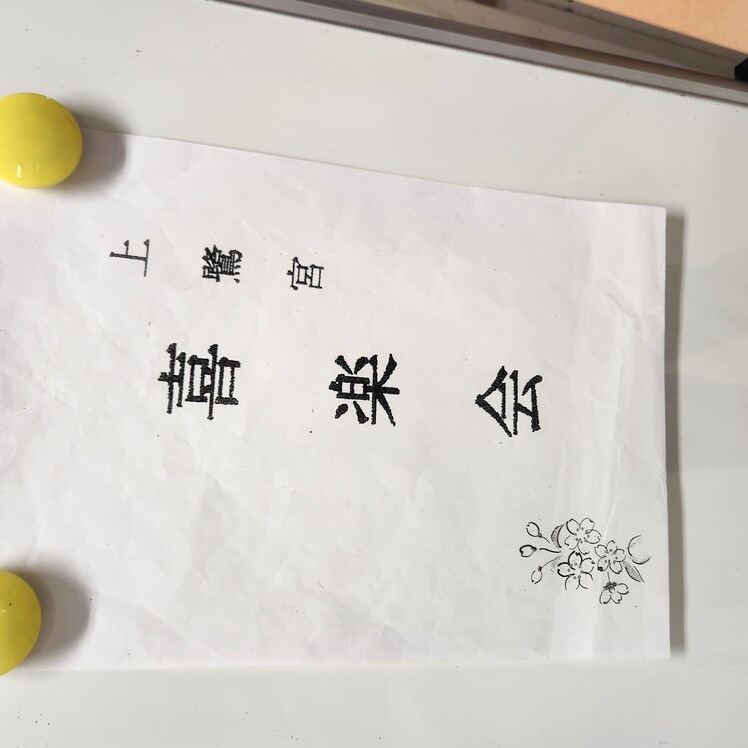 上鷺宮
喜楽会